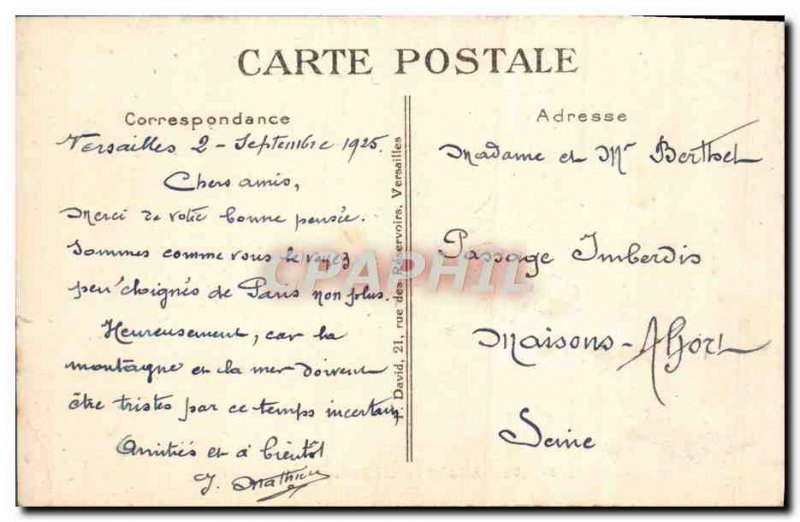 CARTE POSTALE
Correspondance
Versailles 2 - Septembre 1925.
Chers amis,
Merci de votre bonne pensée.
Sommes comme vous le voyez
peu éloignés de Paris non plus.
Heureusement, car la
montagne et la mer doivent
être tristes par ce temps incertain
Amitiés et à bientôt
J. Mathieu
David, 21, rue des Réservoirs, Versailles
Adresse
Madame et Mr Berthet
Passage Imberdis
Maisons-Alfort
Seine
CPAPHIL